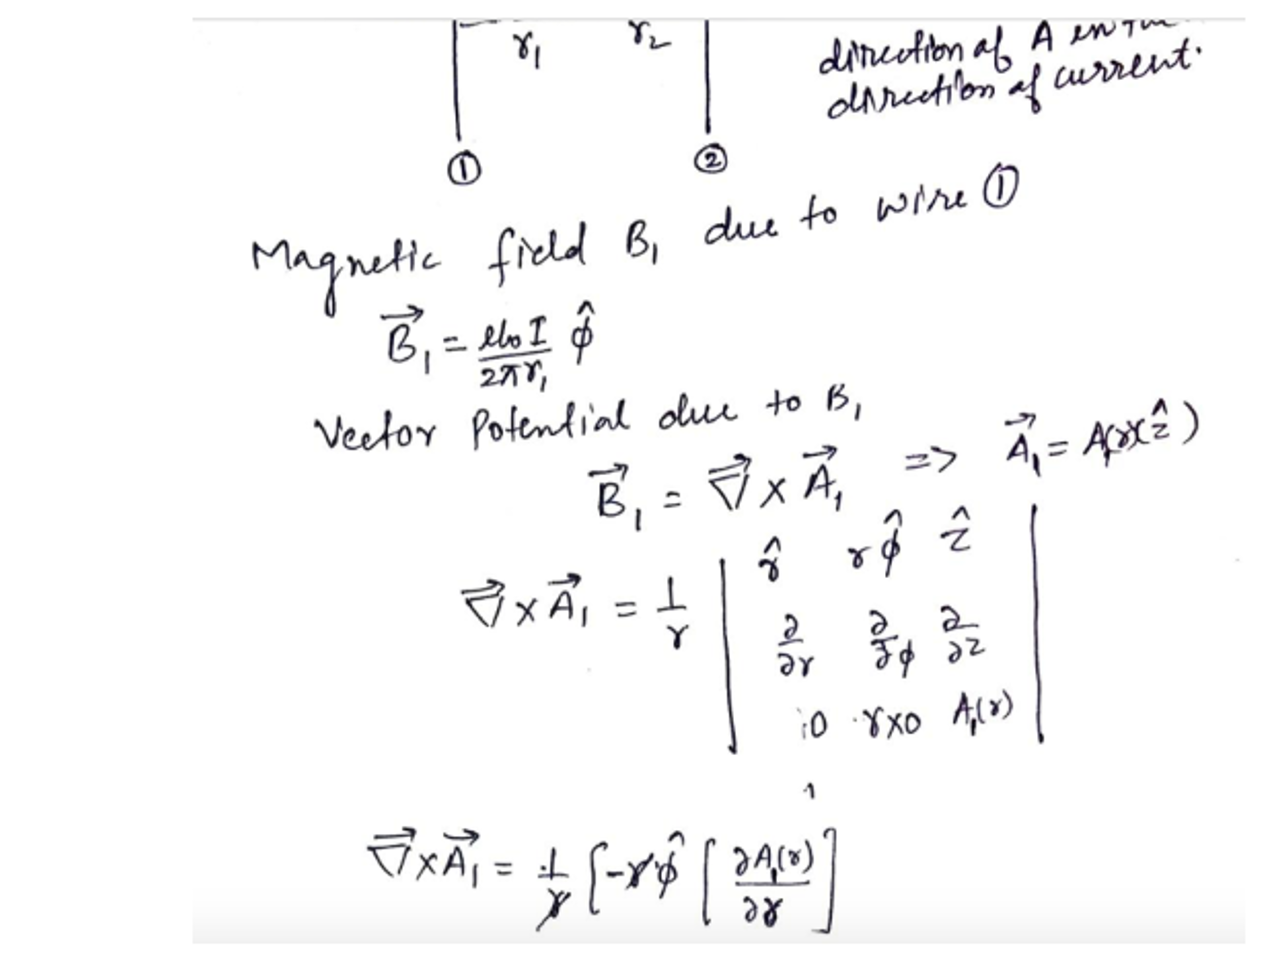 r₁ r₂
direction of A in the
direction of current.
① ②
Magnetic field B₁ due to wire ①
B⃗₁ = μ₀I/2πr₁ φ̂
Vector Potential due to B₁
B⃗₁ = ∇⃗ × A⃗₁ => A⃗₁ = A₁(r)(ẑ)
∇⃗ × A⃗₁ = 1/r | r̂ rφ̂ ẑ
∂/∂r ∂/∂φ ∂/∂z
0 r×0 A₁(r) |
∇⃗ × A⃗₁ = 1/r [-rφ̂ [∂A₁(r)/∂r]